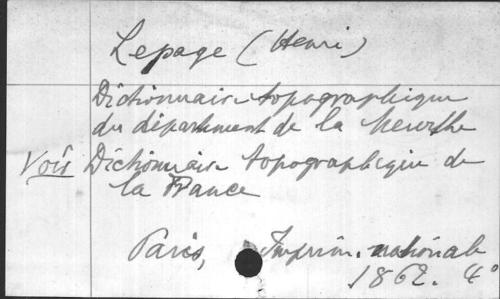 Lepage (Henri)
Dictionnaire topographique
du département de la Meurthe
Voir Dictionnaire topographique de
la France
Paris, Imprim. nationale
1862. 4°